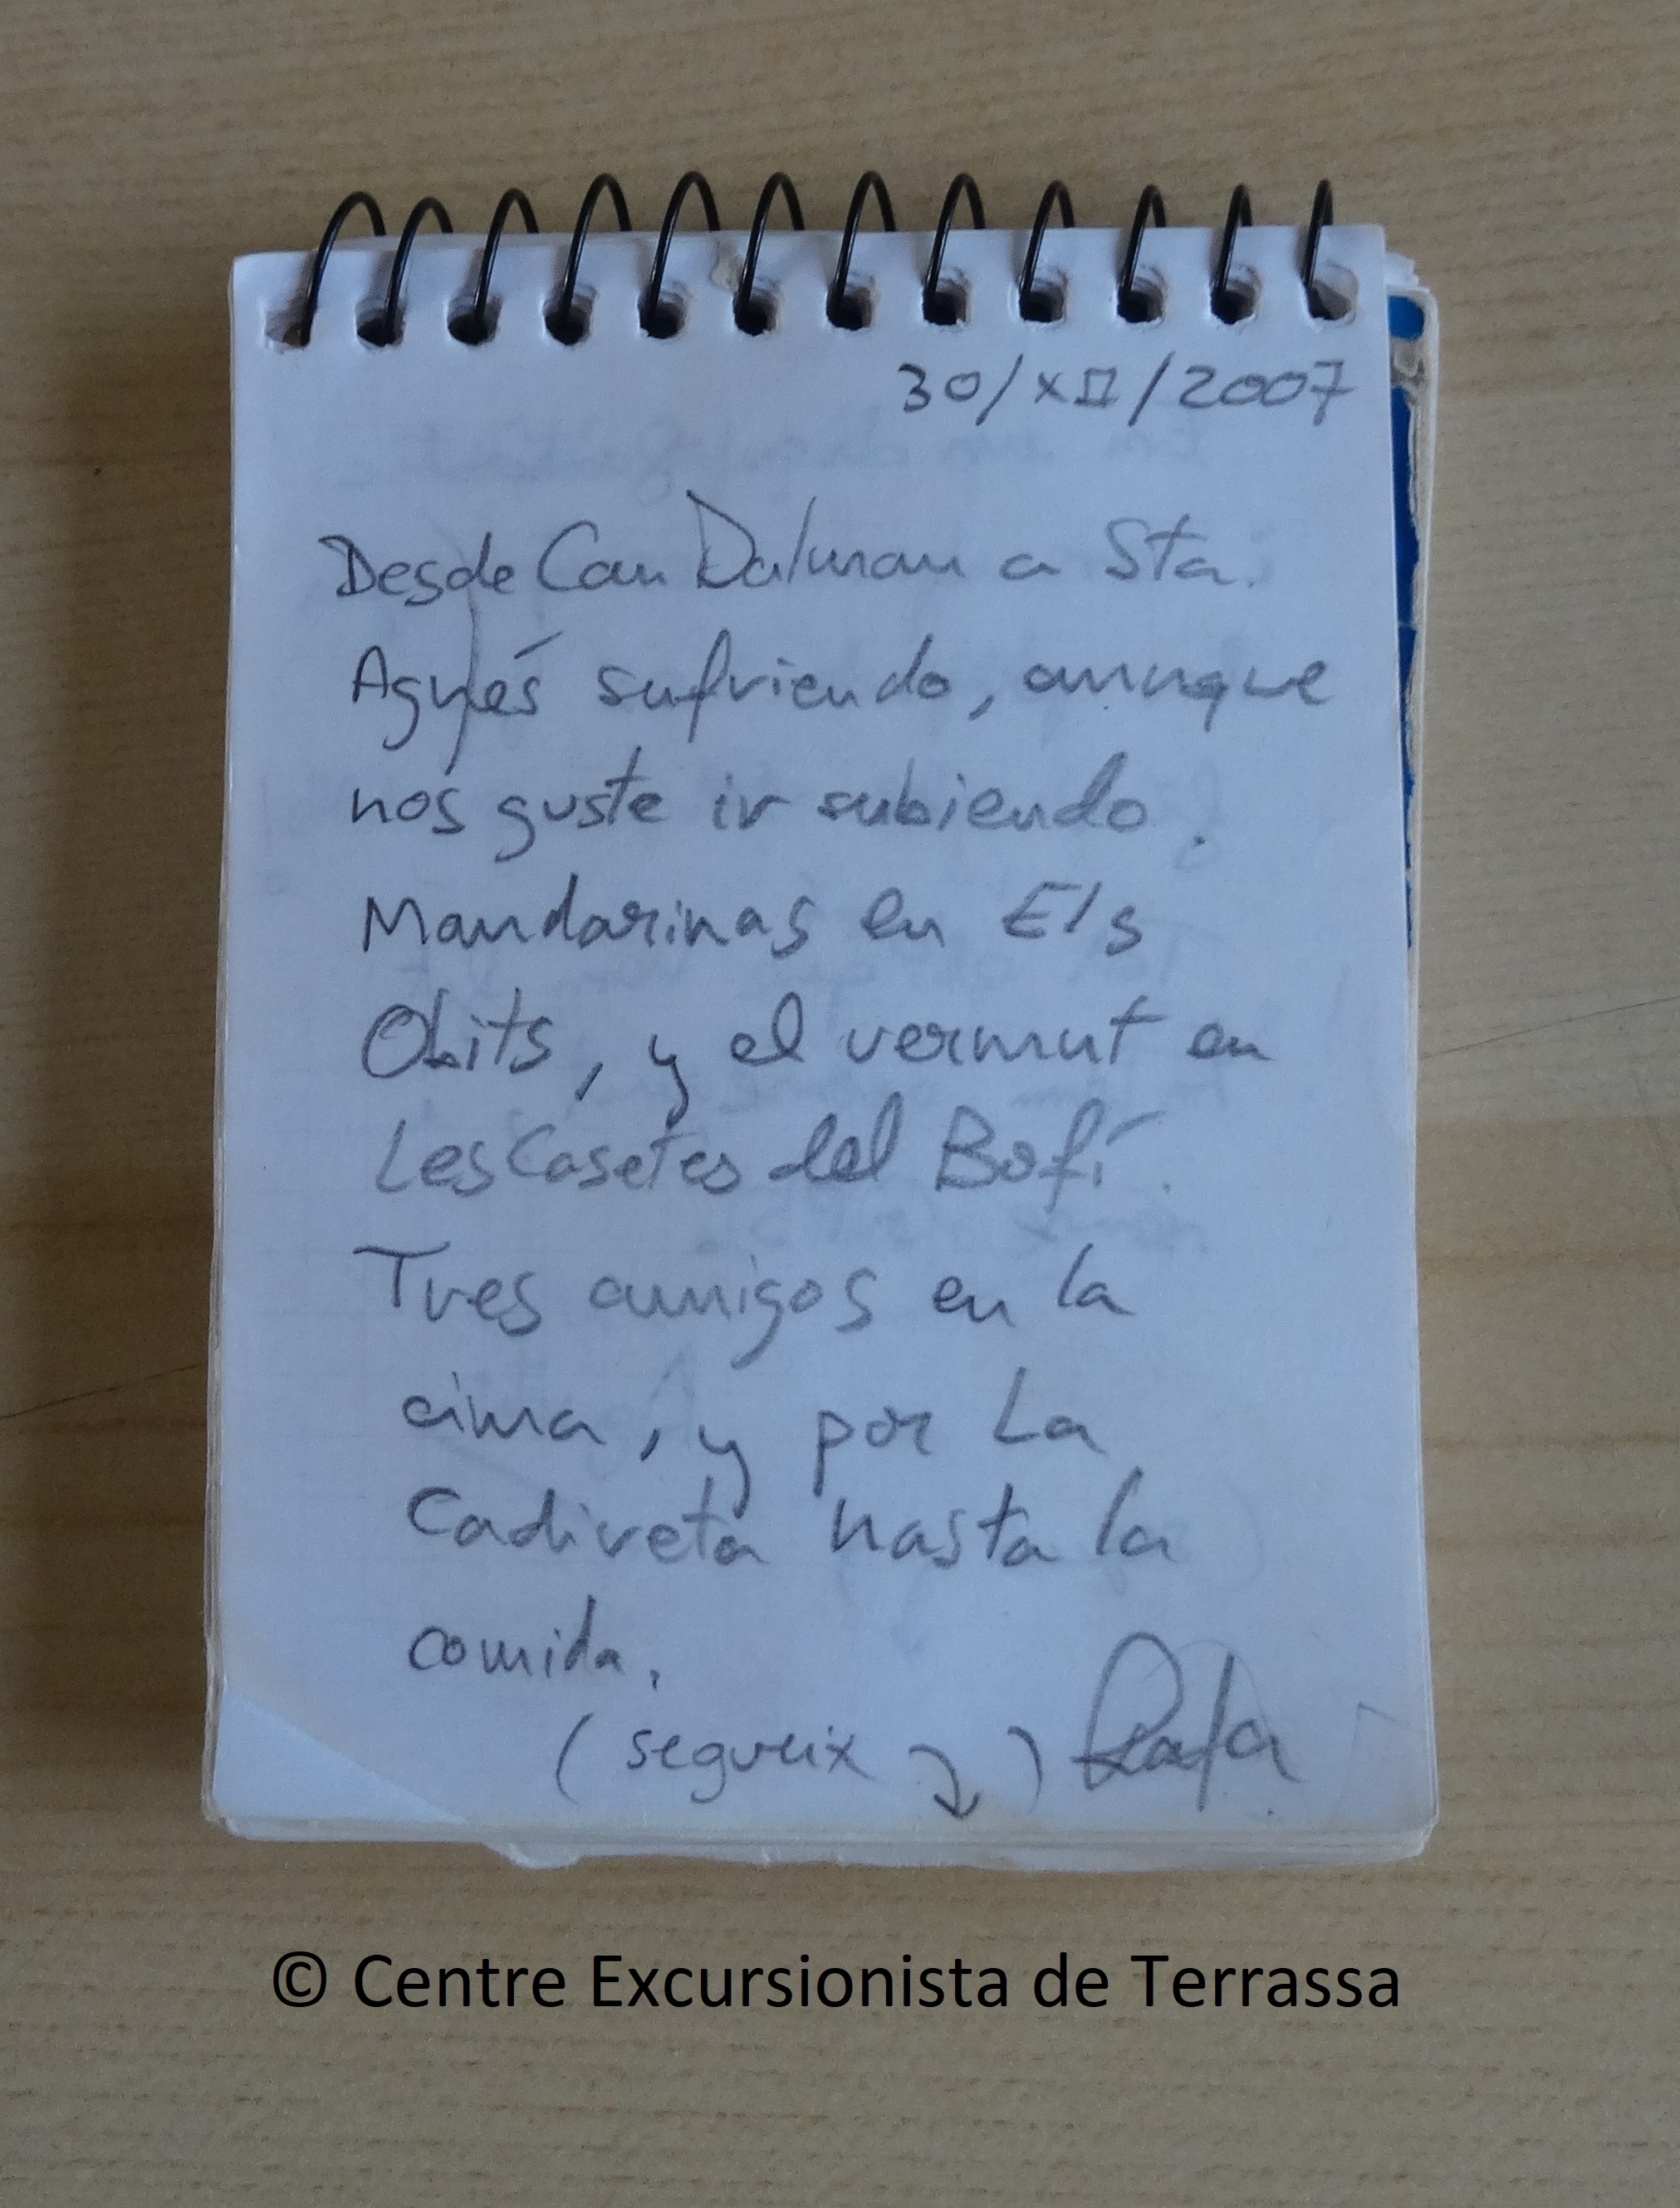 30/XII/2007
Desde Can Dalmau a Sta.
Agnés sufriendo, aunque
nos guste ir subiendo.
Mandarinas en Els
Obits, y el vermut en
Les Casetes del Bofí.
Tres amigos en la
cima, y por La
Cadireta hasta la
comida.
(segueix ↓) Rafa
© Centre Excursionista de Terrassa